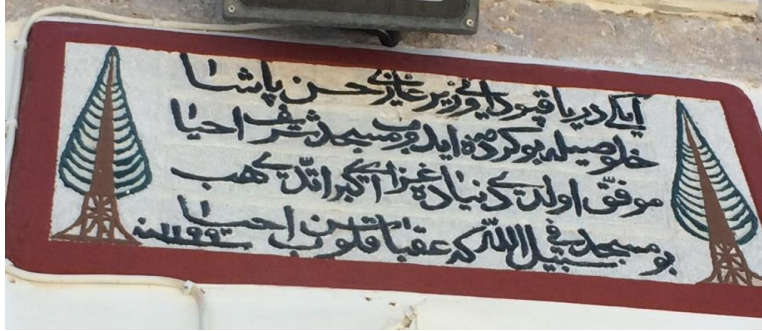 ایکی دریا قپودانی وزیر غازی حسن پاشا
خلوصیله بو کرده ایدوب مسجد شریف احیا
موفق اولدی دنیاده غزای اکبر اتدی هب
بو مسجد فی سبیل الله که عقباده قلوب احیا
سنه ١١٩٩